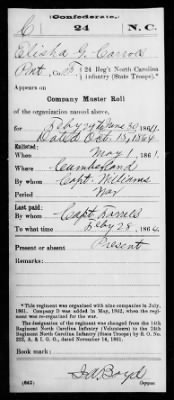 (Confederate.)
C 24 N. C.
Elisha G. Carver
Pvt., Co. F, 24 Reg't North Carolina
Infantry (State Troops).*
Appears on
Company Muster Roll
of the organization named above,
for Feby 29 to June 30, 1864.
Dated Oct. 13, 1864
Enlisted:
When May 1, 1861.
Where Cumberland
By whom Capt. Williams
Period War
Last paid:
By whom Capt.
To what time Feby 28, 1864.
Present or absent Present
Remarks:
*This regiment was organized with nine companies in July,
1861. Company D was added in May, 1862, when the regi-
ment was re-organized.
The designation of the regiment was changed from the 14th
Regiment North Carolina Infantry (Volunteers) to the 24th
Regiment North Carolina Infantry (State Troops) by S. O. No.
222, A. & I. G. O., dated November 14, 1861.
Book mark:
(642)
Boyd
Copyist.